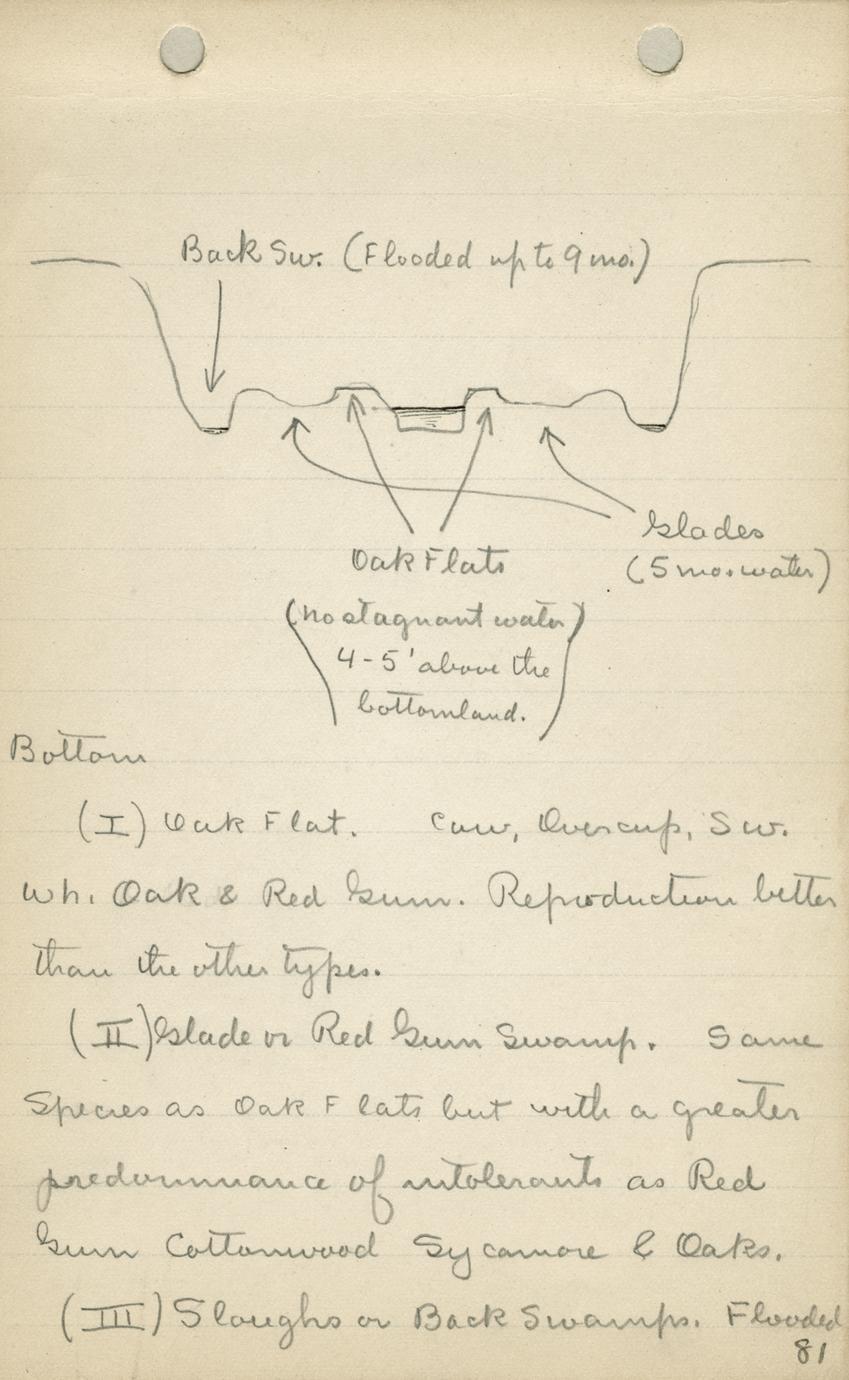 Back Sw. (Flooded up to 9 mo.)
Glades
(5 mo. water)
Oak Flats
(no stagnant water)
4-5' above the
bottomland.
Bottom
(I) Oak Flat. Cow, Overcup, Sw.
Wh. Oak & Red Gum. Reproduction better
than the other types.
(II) Glade or Red Gum Swamp. Same
Species as Oak Flats but with a greater
predominance of intolerants as Red
Gum Cottonwood Sycamore & Oaks.
(III) Sloughs or Back Swamps. Flooded
81